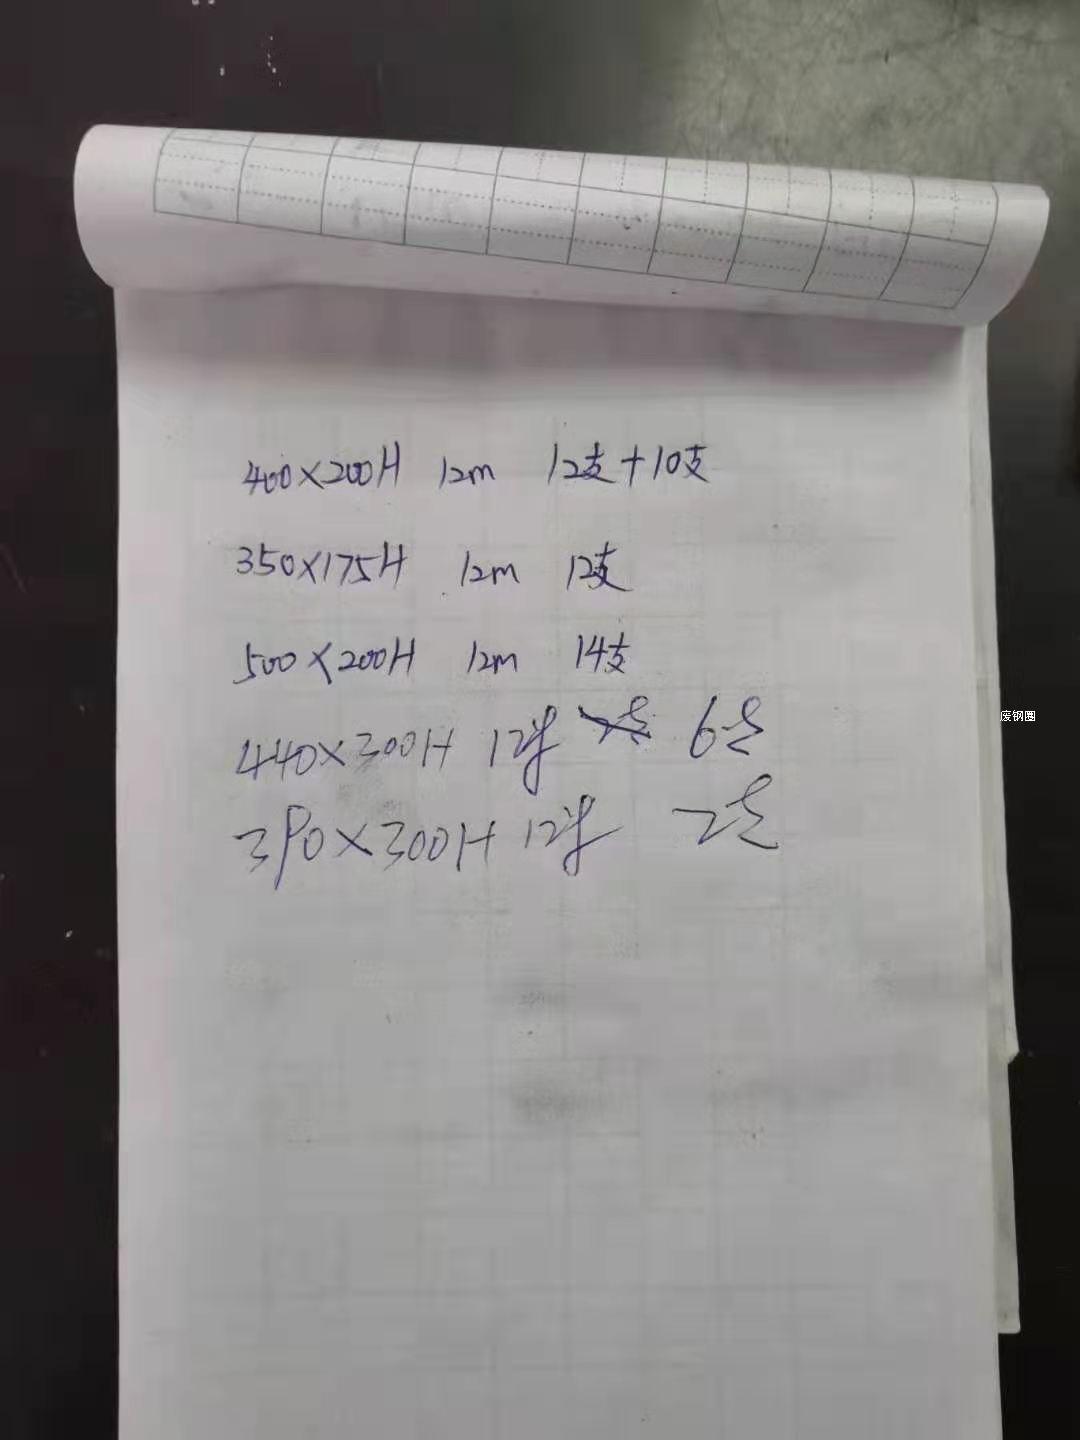 400×200H 12m 12支+10支
350×175H 12m 12支
500×200H 12m 14支
440×300H 12米 6支
390×300H 12米 2支
废钢圈